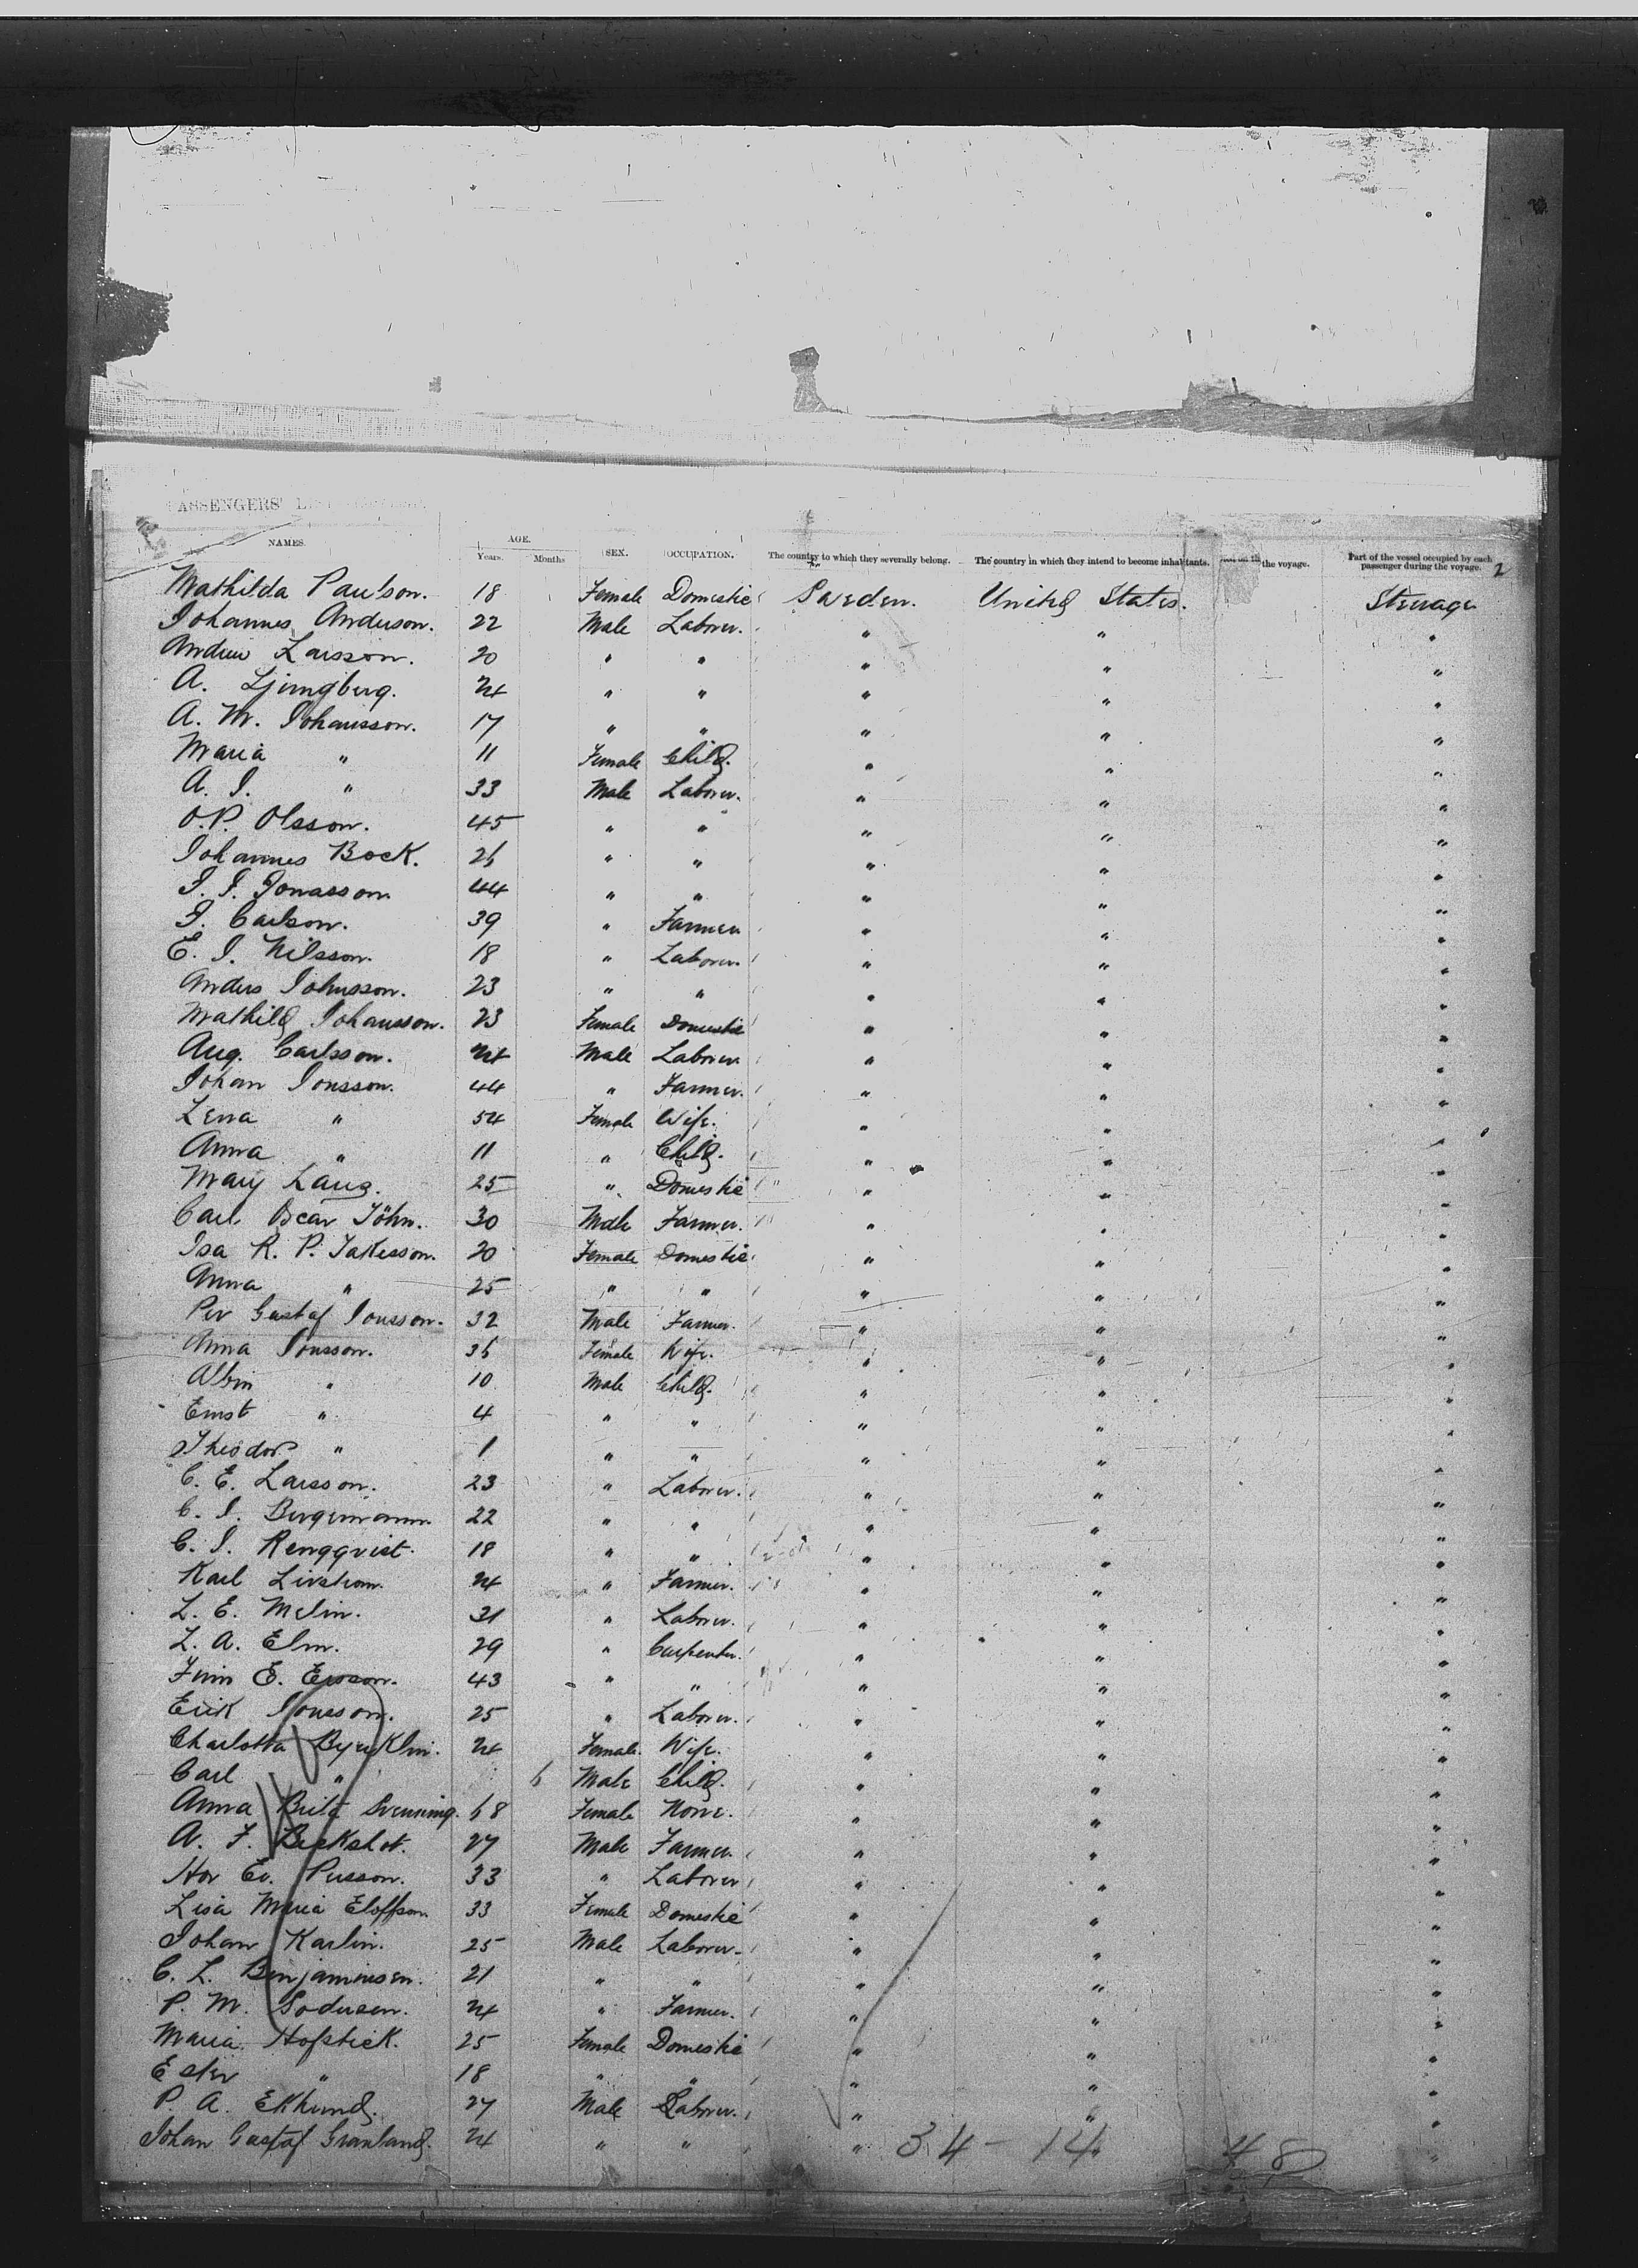 PASSENGERS' L
NAMES. AGE. Years. Months SEX. OCCUPATION. The country to which they severally belong. The country in which they intend to become inhabitants. the voyage. Part of the vessel occupied by each passenger during the voyage. 2
Mathilda Paulson. 18 Female Domestic Sweden. United States. Steerage
Johannes Anderson. 22 Male Laborer. " " "
Andrew Larsson. 20 " " " " "
A. Ljungberg. 24 " " " " "
A. M. Johansson. 17 " " " " "
Maria " 11 Female Child. " " "
A. J. " 33 Male Laborer. " " "
O. P. Olsson. 45 " " " " "
Johannes Bock. 26 " " " " "
J. J. Jonasson 44 " " " " "
J. Carlson. 39 " Farmer " " "
E. J. Nilsson. 18 " Laborer. " " "
Anders Johnsson. 23 " " " " "
Mathild Johansson. 23 Female Domestic " " "
Aug. Carlsson. 24 Male Laborer " " "
Johan Jonsson. 44 " Farmer. " " "
Lena " 54 Female Wife. " " "
Anna " 11 " Child. " " "
Mary Lang. 25 " Domestic " " "
Carl Oscar Föhn. 30 Male Farmer. " " "
Isa R. P. Jakesson. 20 Female Domestic " " "
Anna " 25 " " " " "
Per Gustaf Jonsson. 32 Male Farmer. " " "
Anna Jonsson. 36 Female Wife. " " "
Albin " 10 Male Child. " " "
Ernst " 4 " " " " "
Theodor " 1 " " " " "
C. E. Larsson. 23 " Laborer. " " "
C. J. Bergemann 22 " " " " "
C. J. Rengqvist. 18 " " " " "
Karl Livstrom. 24 " Farmer. " " "
L. E. Melin. 31 " Laborer. " " "
L. A. Elm. 29 " Carpenter. " " "
Finn E. Ersson. 43 " " " " "
Erik Jonsson. 25 " Laborer. " " "
Charlotta 24 Female. Wife. " " "
Carl " 6 Male Child. " " "
Anna Brita Svenning. 68 Female None. " " "
A. F. 27 Male Farmer. " " "
Persson. 33 " Laborer " " "
Lisa Maria Eloffson 33 Female Domestic " " "
Johan Karlin. 25 Male Laborer. " " "
C. L. Benjaminsen. 21 " " " " "
P. M. Sodersen. 24 " Farmer. " " "
Maria Hofstick. 25 Female Domestic " " "
Ester " 18 " " " " "
P. A. Eklund. 27 Male Laborer. " " "
Johan Gustaf Granland. 24 " " " " "
34 - 14 48